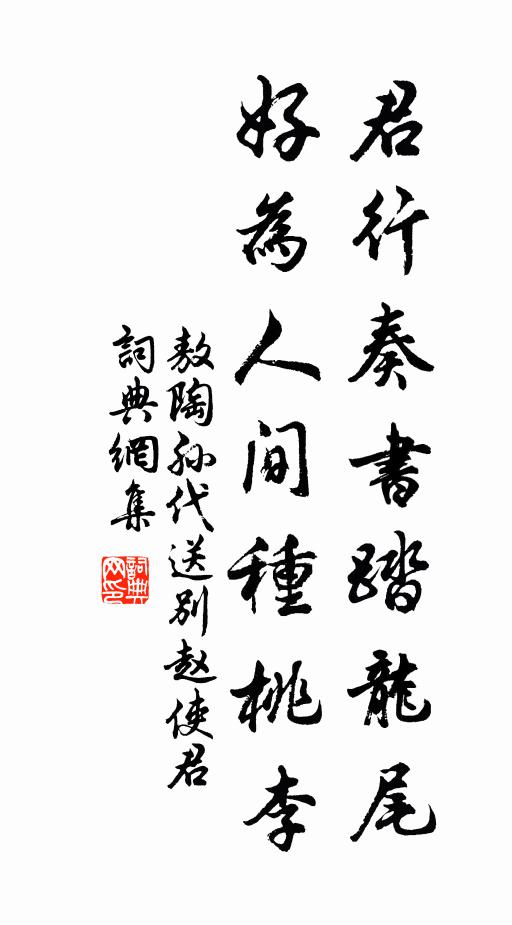 君行奏書踏龍尾
好為人间種桃李
敖陶孙代送别赵使君
詞典網集
詞典網印